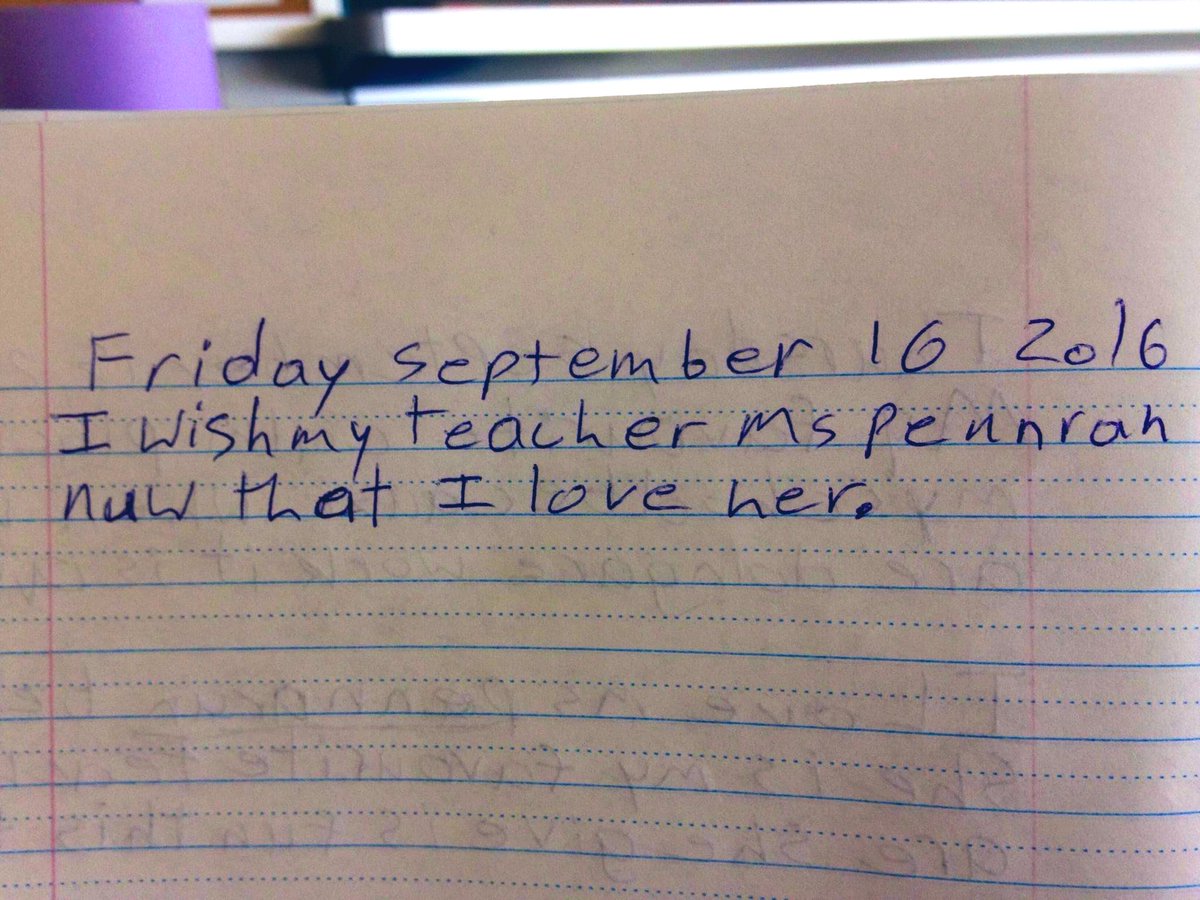 Friday september 16 2016
I wish my teacher Ms pennrah
nuw that I love her.